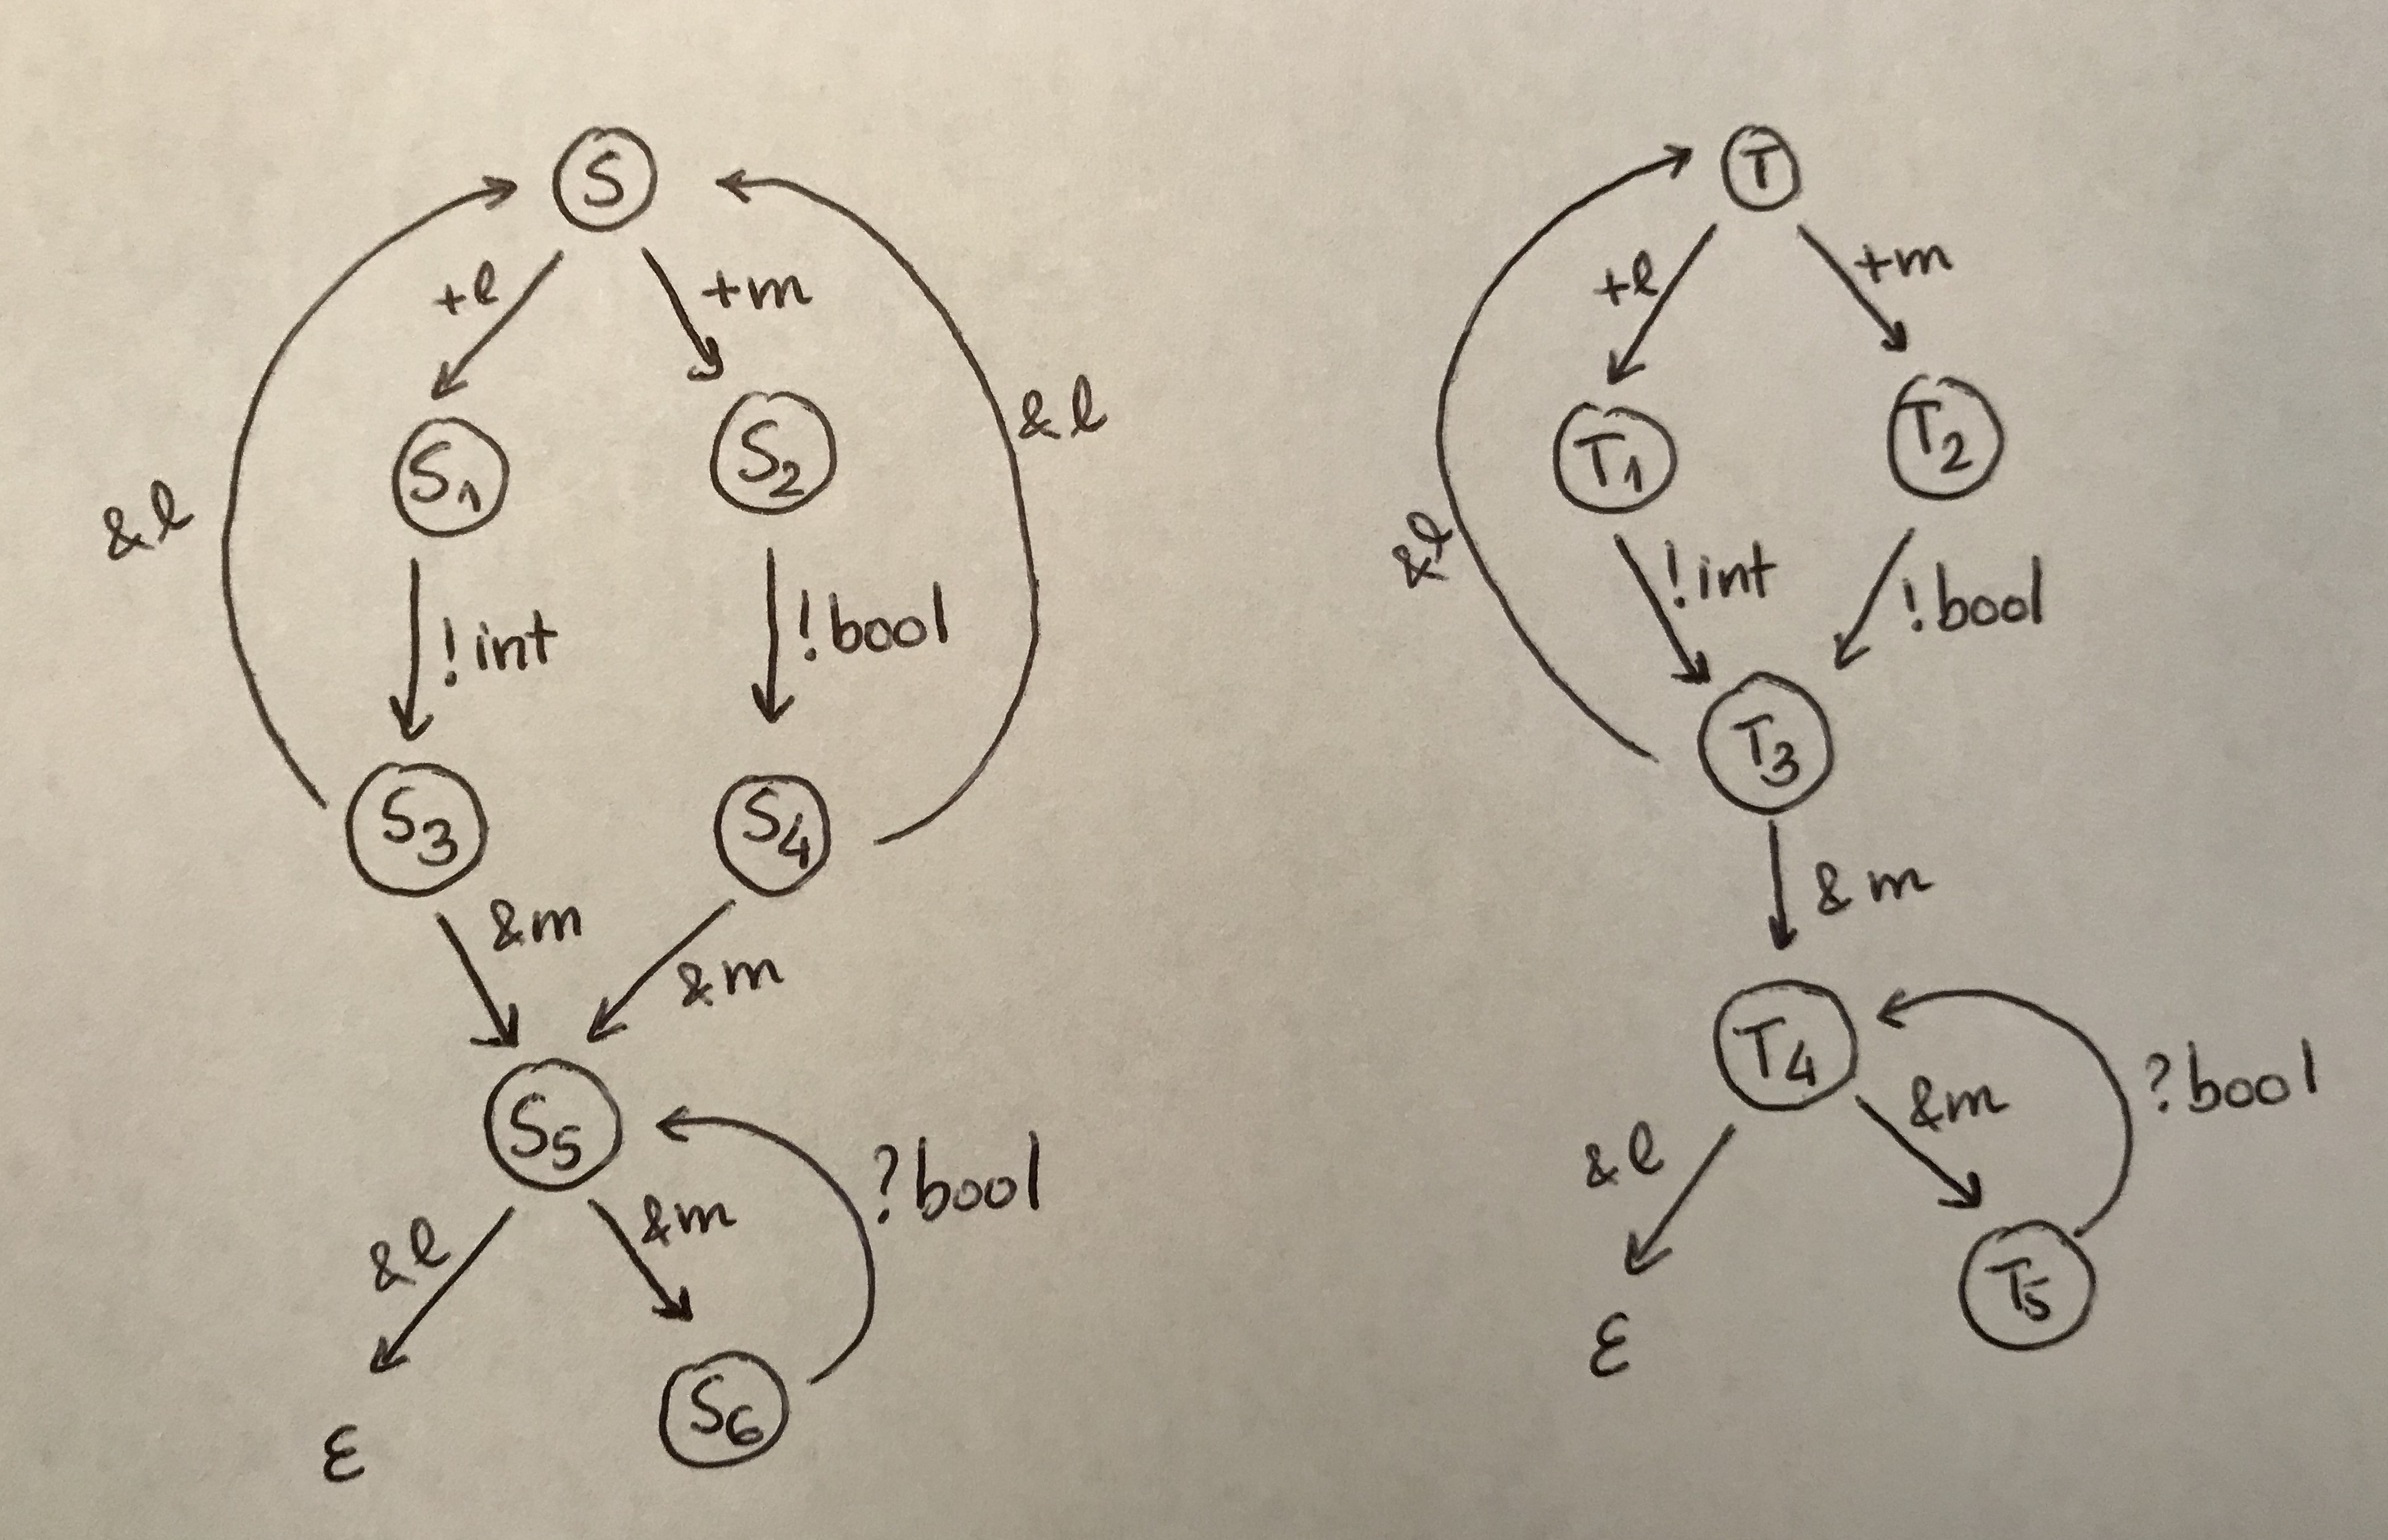 S
+l
+m
&l
&l
S1
S2
!int
!bool
S3
S4
&m
&m
S5
?bool
&l
&m
ε
S6
T
+l
+m
&l
T1
T2
!int
!bool
T3
&m
T4
?bool
&l
&m
ε
T5